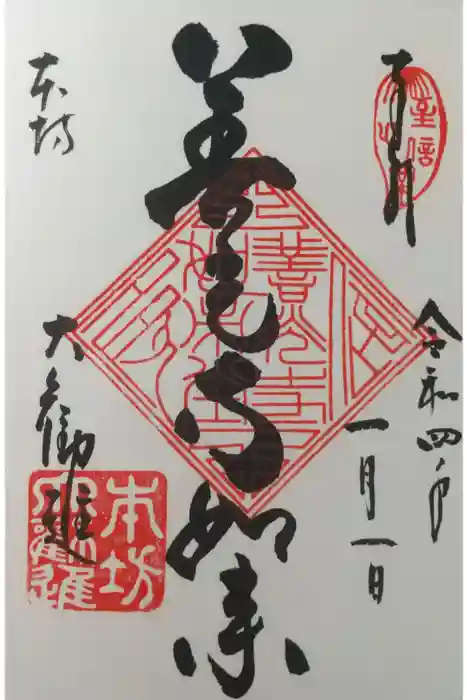 奉拝
令和四年
一月一日
善光寺如来
本坊
大勧進
本坊
大勸進